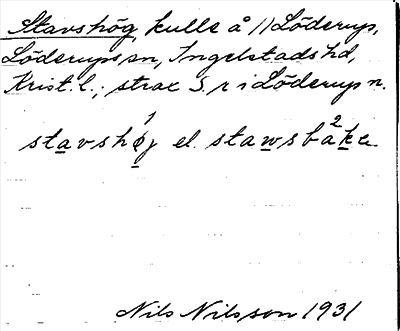 Stavshög, kulle å 11 Löderup,
Löderups sn, Ingelstads hd,
Krist. l.; strax S r i Löderup n.
stavshøj el. stawsbaka
Nils Nilsson 1931